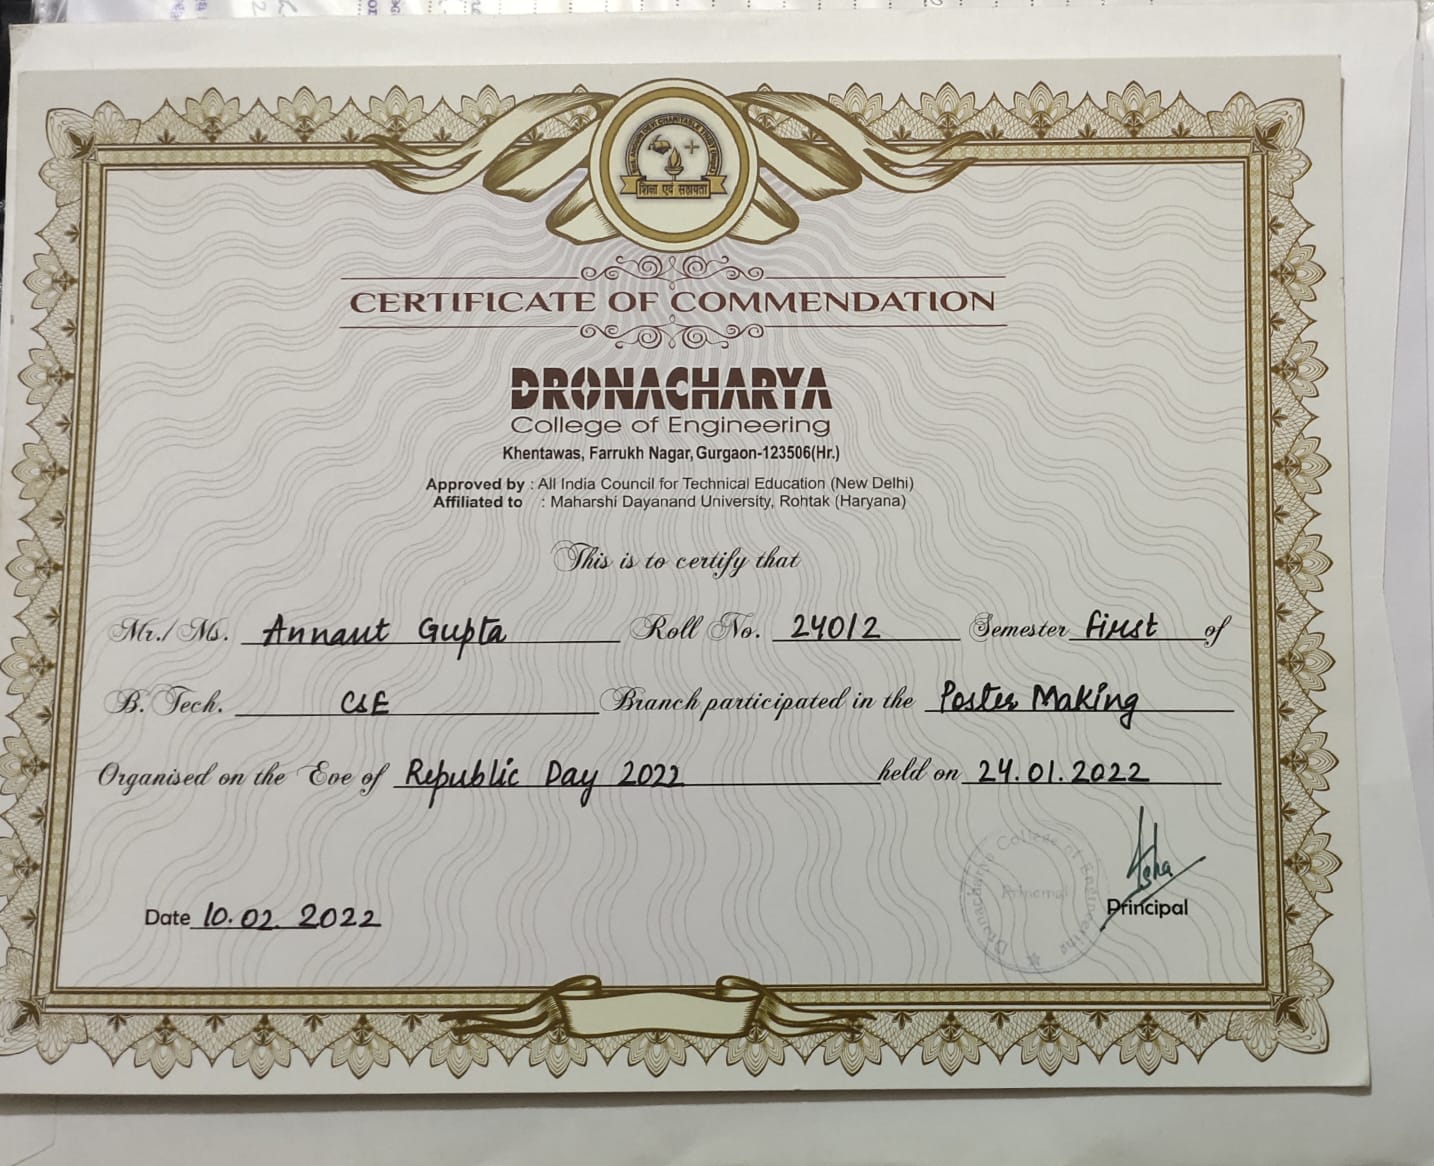 शिक्षा एवं सहायता
CERTIFICATE OF COMMENDATION
DRONACHARYA
College of Engineering
Khentawas, Farrukh Nagar, Gurgaon-123506(Hr.)
Approved by : All India Council for Technical Education (New Delhi)
Affiliated to : Maharshi Dayanand University, Rohtak (Haryana)
This is to certify that
Mr./ Ms. Annant Gupta Roll No. 24012 Semester First of
B. Tech. CSE Branch participated in the Poster Making
Organised on the Eve of Republic Day 2022 held on 24.01.2022
Dronacharya College of Engineering
Principal
Asha
Date 10.02.2022 Principal